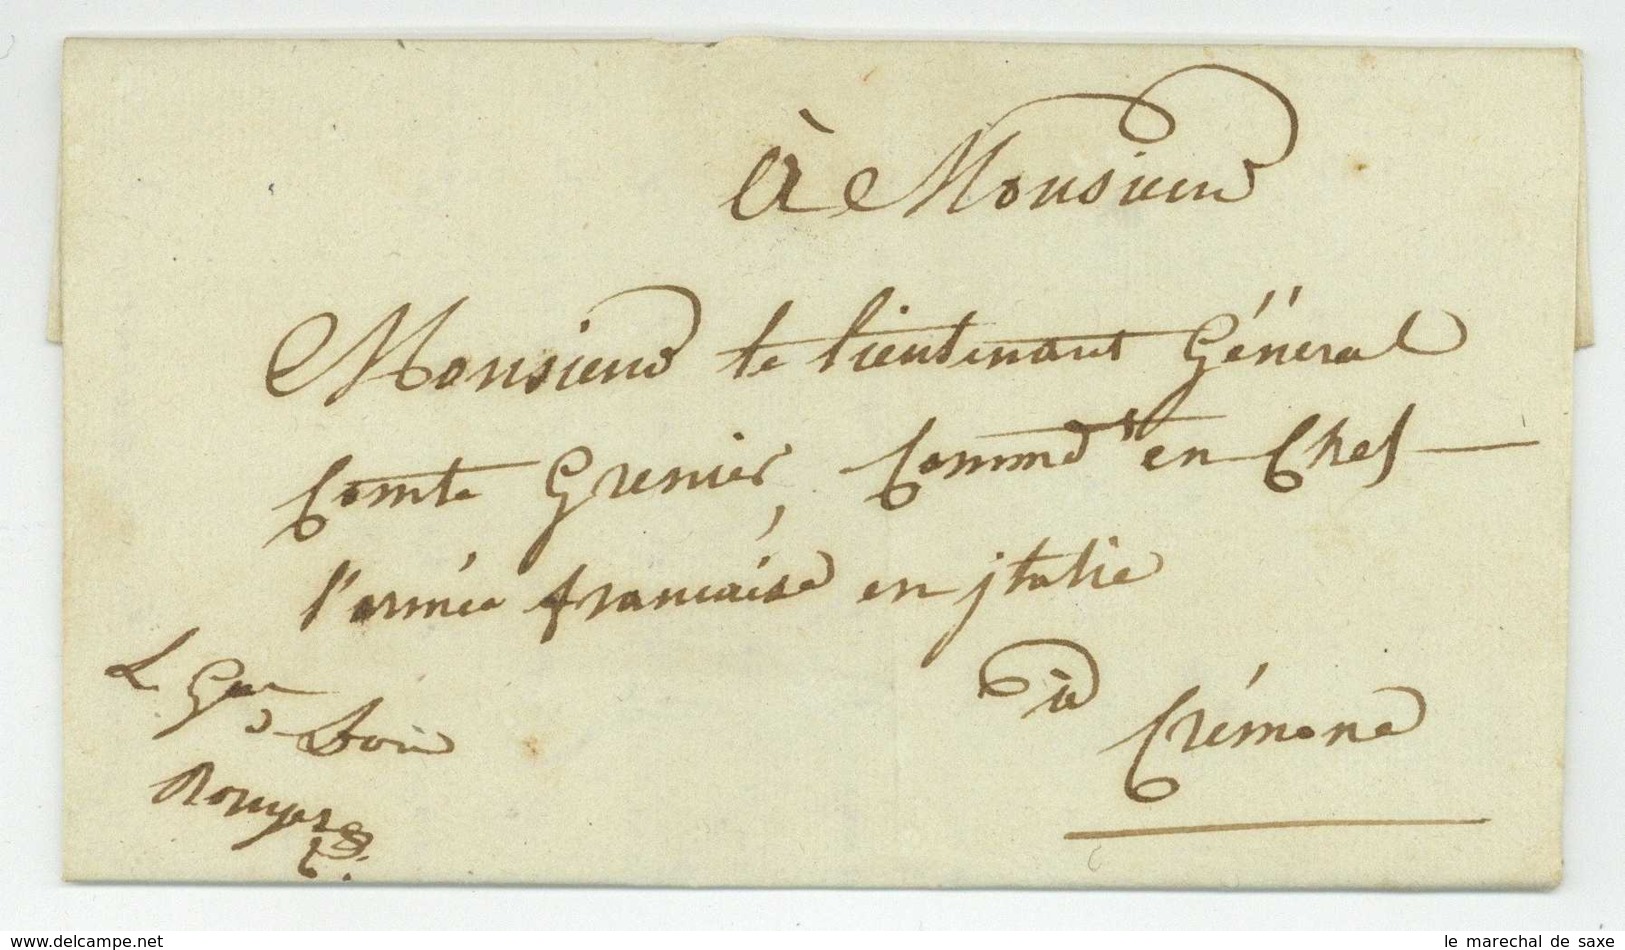 à Monsieur
Monsieur le lieutenant Général
Comte Grenier, Commdt en Chef
l'armée française en jtalie
à
Crémone
L Gal Bon
Rouyer
www.delcampe.net
le marechal de saxe